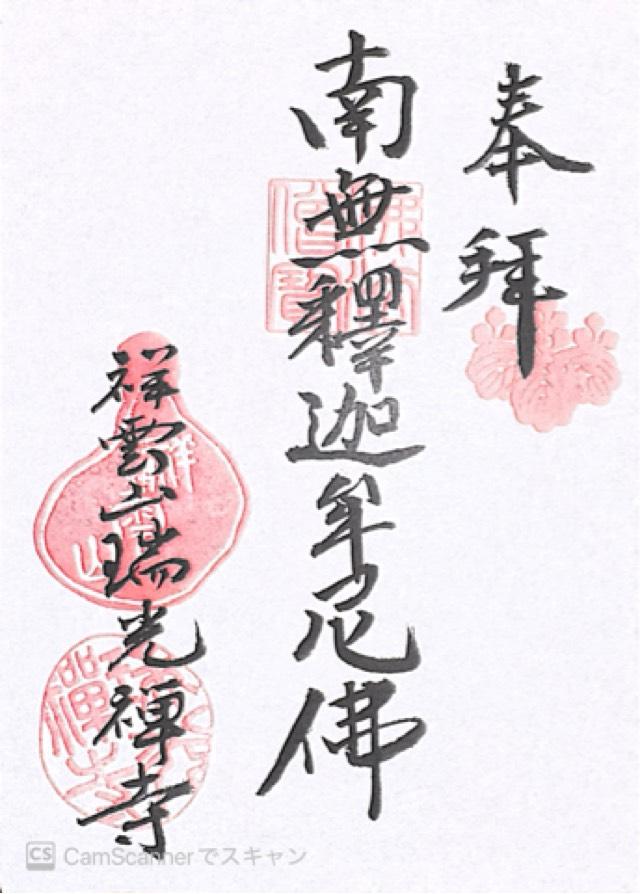 奉拜
南無釋迦牟尼佛
祥雲山瑞光禅寺
佛法僧寶
CS CamScannerでスキャン